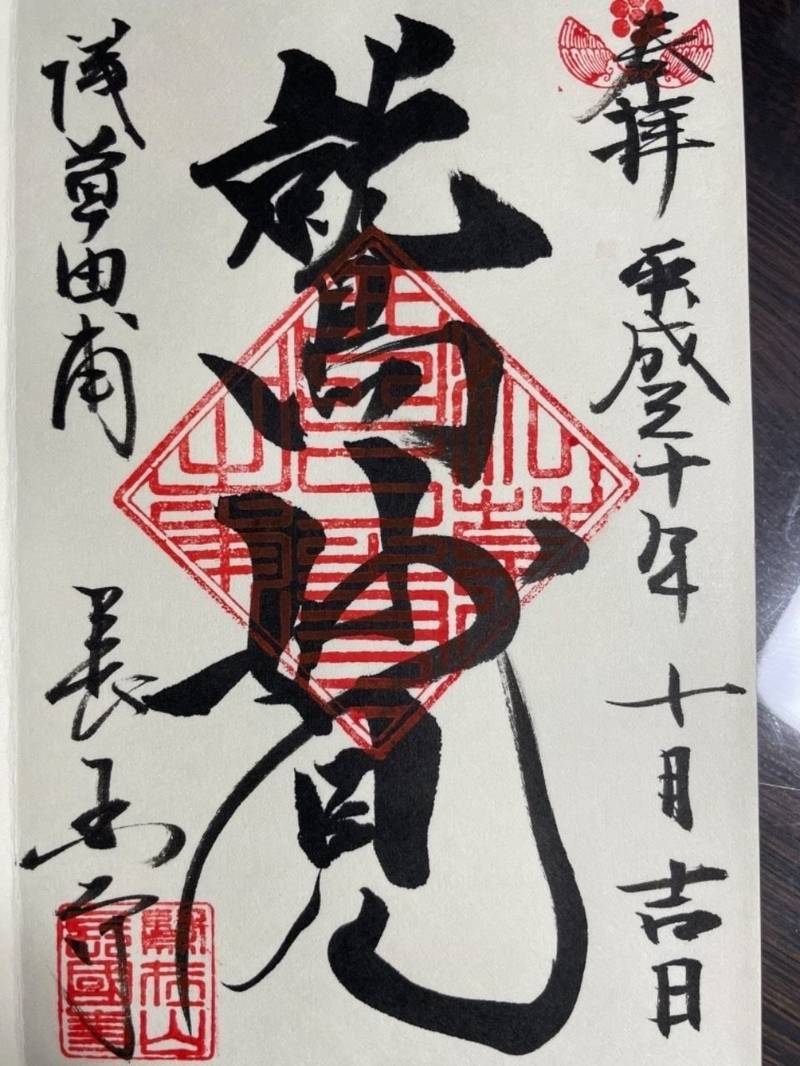 奉拝 平成三十年 十月吉日
鷲妙見
淺草田甫 長国寺
鷲在山
長國寺